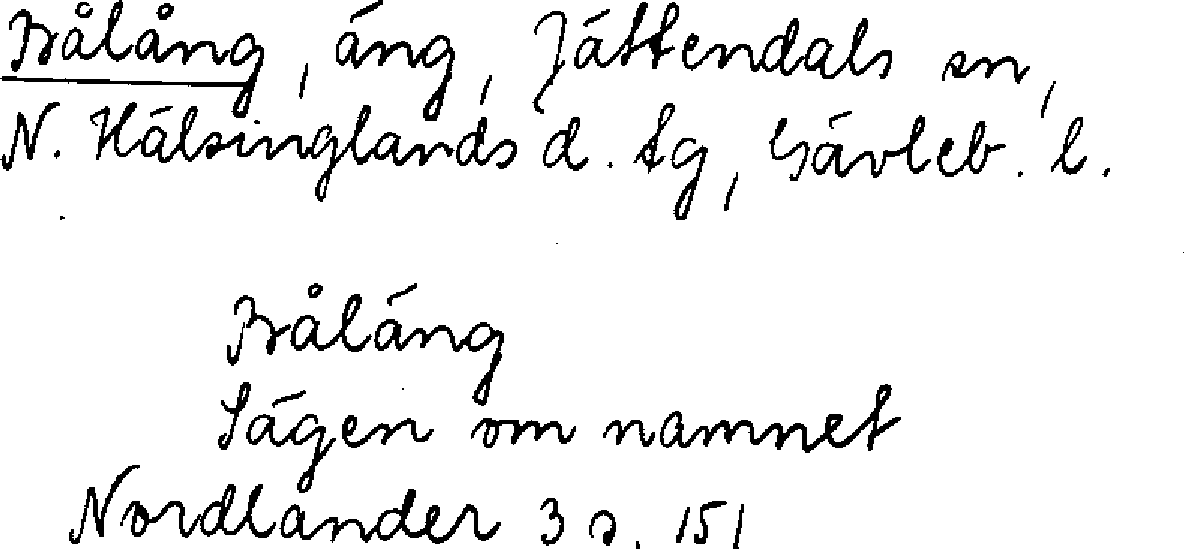 Bålång, äng, Jättendals sn,
N. Hälsinglands d. tg, Gävleb. l.
Båläng
Sägen om namnet
Nordlander 3 s. 151